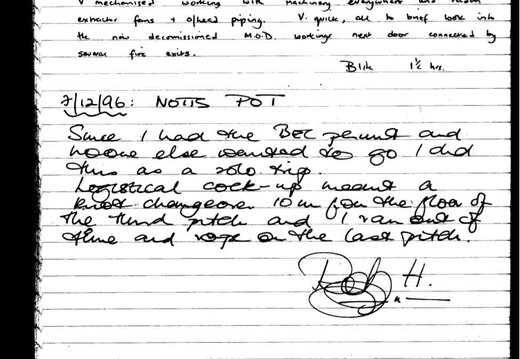 V mechanised working with machinery everywhere and radon
extractor fans + o/head piping. V. quick, all to brief look into
the now decomissioned M.O.D. workings next door connected by
several fire exits.
Blik 1½ hrs.
7/12/96: NOTTS POT
Since I had the BEC permit and
noone else wanted to go I did
this as a solo trip.
Logistical cock-up meant a
knot changeover 10m from the floor of
the third pitch and I ran out of
time and rope on the last pitch.
Rob H.